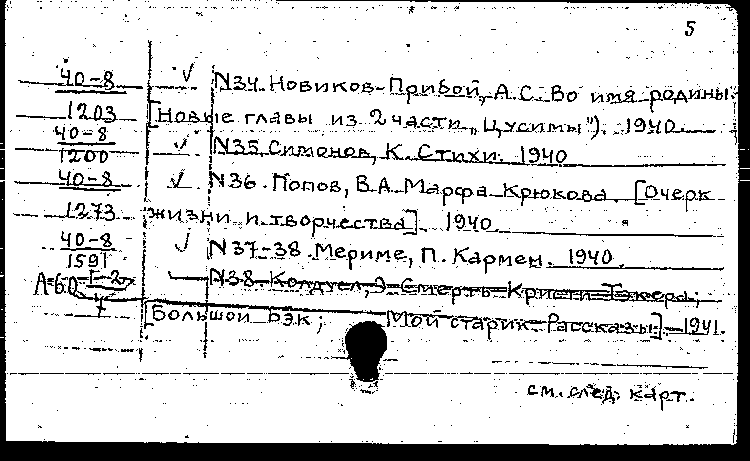 5
40-8 ✓ N34. Новиков-Прибой, А.С. Во имя родины.
1203 [Новые главы из 2 части „Цусимы"). 1940
40-8
1200 ✓ N35. Симонов, К. Стихи. 1940
40-8 ✓ N36. Попов, В.А. Марфа Крюкова. [Очерк
1273 жизни и творчества]. 1940.
40-8
1591 ✓ N37-38. Мериме, П. Кармен. 1940.
А=60 1-2 N38. Колдуел, Э. Смерть Кристи Тэкера;
7 [Большой Бэк; Мой старик. Рассказы]. 1941.
см. след. карт.